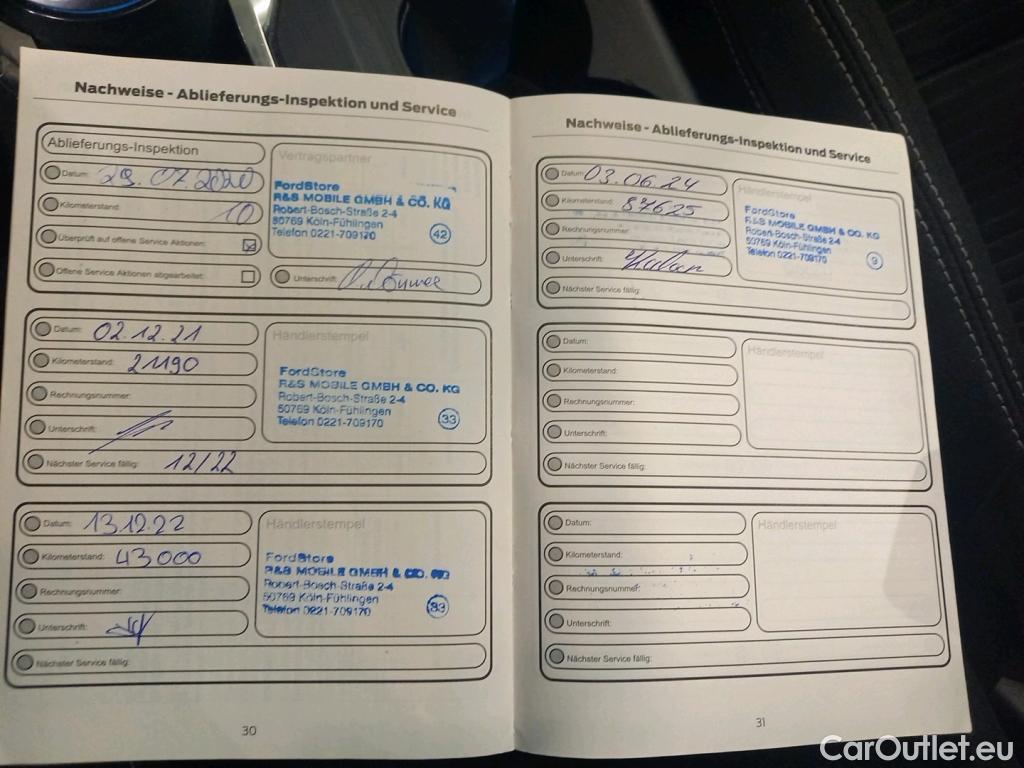 Nachweise - Ablieferungs-Inspektion und Service
Ablieferungs-Inspektion
Datum: 29.07.2020
Kilometerstand: 10
Überprüft auf offene Service Aktionen:
Offene Service Aktionen abgearbeitet:
Vertragspartner
FordStore
R&S MOBILE GMBH & CO. KG
Robert-Bosch-Straße 2-4
50769 Köln-Fühlingen
Telefon 0221-709170
42
Unterschrift:
Datum: 02.12.21
Kilometerstand: 21190
Rechnungsnummer:
Unterschrift:
Nächster Service fällig: 12/22
Händlerstempel
FordStore
R&S MOBILE GMBH & CO. KG
Robert-Bosch-Straße 2-4
50769 Köln-Fühlingen
Telefon 0221-709170
33
Datum: 13.12.22
Kilometerstand: 43000
Rechnungsnummer:
Unterschrift:
Nächster Service fällig:
Händlerstempel
FordStore
R&S MOBILE GMBH & CO. KG
Robert-Bosch-Straße 2-4
50769 Köln-Fühlingen
Telefon 0221-709170
33
30
Nachweise - Ablieferungs-Inspektion und Service
Datum: 03.06.24
Kilometerstand: 87625
Rechnungsnummer:
Unterschrift:
Nächster Service fällig:
Händlerstempel
FordStore
R&S MOBILE GMBH & CO. KG
Robert-Bosch-Straße 2-4
50769 Köln-Fühlingen
Telefon 0221-709170
9
Datum:
Kilometerstand:
Rechnungsnummer:
Unterschrift:
Nächster Service fällig:
Händlerstempel
Datum:
Kilometerstand:
Rechnungsnummer:
Unterschrift:
Nächster Service fällig:
Händlerstempel
31
CarOutlet.eu